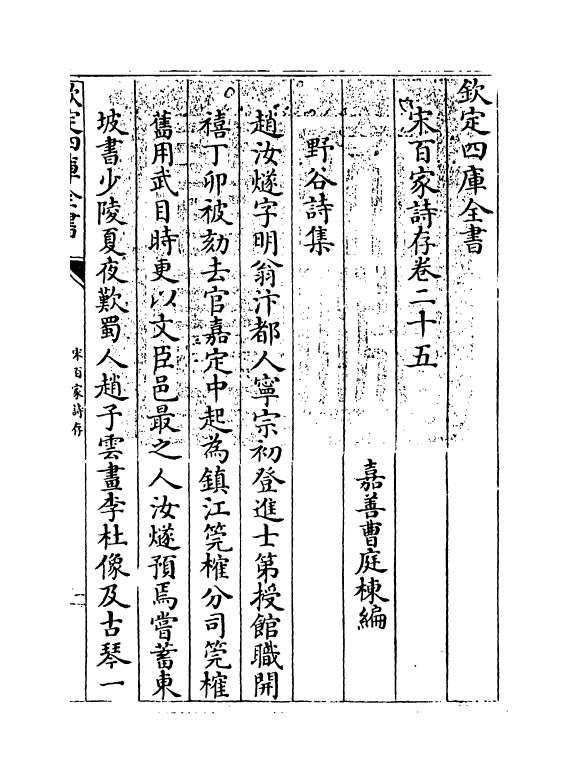 欽定四庫全書
宋百家詩存卷二十五
嘉善曹庭棟編
野谷詩集
趙汝燧字明翁汴都人寧宗初登進士第授館職開
禧丁卯被劾去官嘉定中起為鎮江筦榷分司筦榷
舊用武目時更以文臣邑最之人汝燧預焉嘗蓄東
坡書少陵夏夜歎蜀人趙子雲畫李杜像及古琴一
欽定四庫全書
宋百家詩存